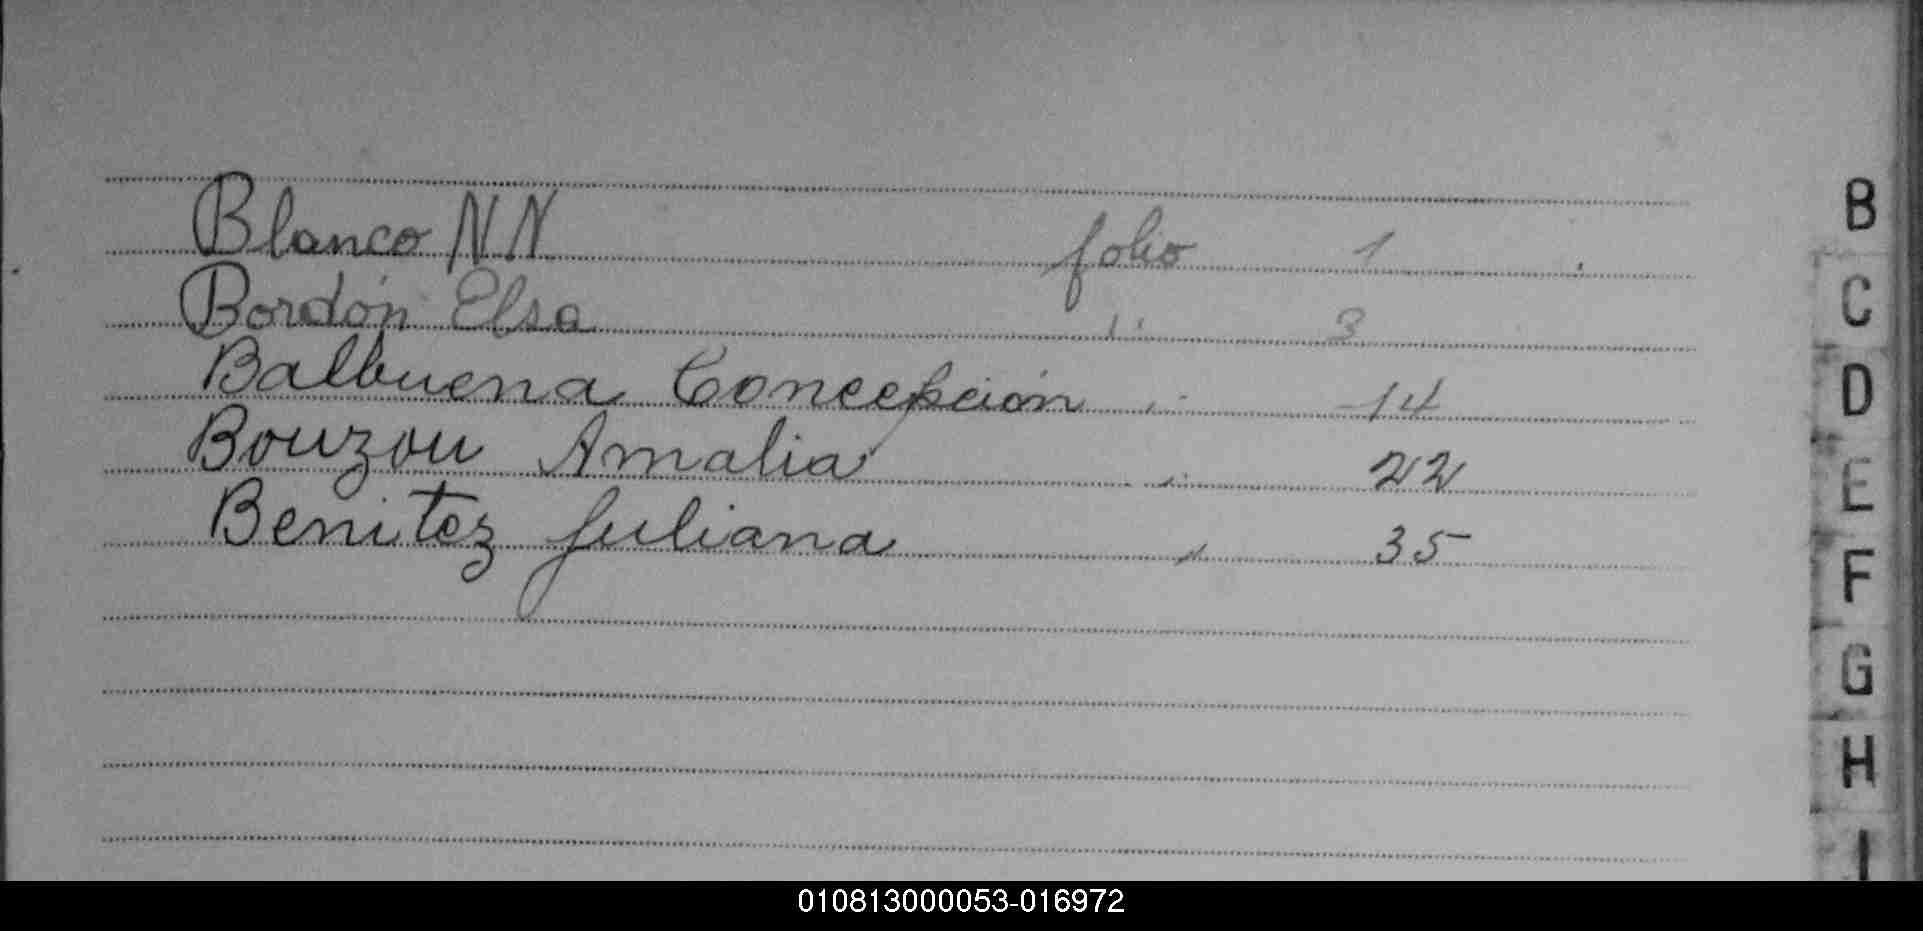 Blanco NN folio 1
Bordón Elsa " 3
Balbuena Concepción " 14
Bouzou Amalia " 22
Benitez Juliana " 35
B
C
D
E
F
G
H
I
010813000053-016972